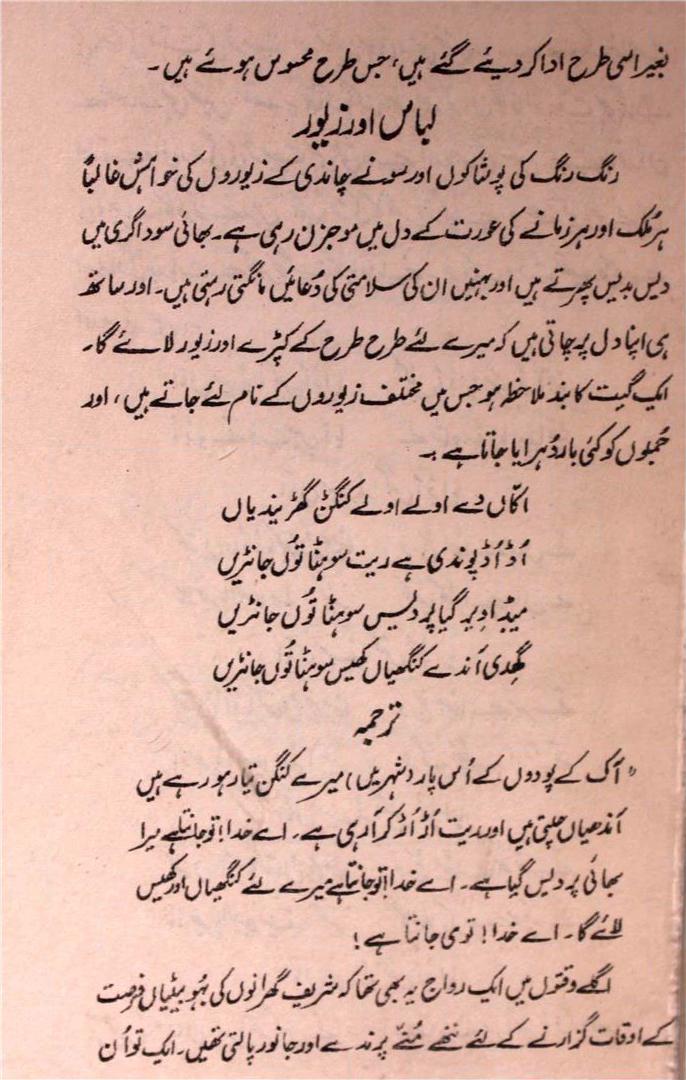 بغیر اسی طرح ادا کر دیئے گئے ہیں، جس طرح محسوس ہوئے ہیں۔
لباس اور زیور
رنگ رنگ کی پوشاکوں اور سونے چاندی کے زیوروں کی خواہش غالباً
ہر ملک اور ہر زمانے کی عورت کے دل میں موجزن رہی ہے۔ بھائی سوداگری میں
دیس بدیس پھرتے ہیں اور بہنیں ان کی سلامتی کی دُعائیں مانگتی رہتی ہیں۔ اور ساتھ
ہی اپنا دل پرچاتی ہیں کہ میرے لئے طرح طرح کے کپڑے اور زیور لائے گا۔
ایک گیت کا بند ملاحظہ ہو جس میں مختلف زیوروں کے نام لئے جاتے ہیں، اور
جُملوں کو کئی بار دُہرایا جاتا ہے :۔
اکّاں دے اولے اولے کنگن گھڑیندیاں
اُڈ اُڈ پوندی ہے ریت سوہنا تُوں جانڑیں
میڈا ویر گیا پردیس سوہنا تُوں جانڑیں
گھِدی آندے کنگھیاں کھیس سوہنا تُوں جانڑیں
ترجمہ
"آک کے پودوں کے اُس پار (شہر میں) میرے کنگن تیار ہو رہے ہیں
آندھیاں چلتی ہیں اور ریت اُڑ اُڑ کر آ رہی ہے۔ اے خدا! تو جانتا ہے میرا
بھائی پردیس گیا ہے۔ اے خدا! تو جانتا ہے میرے لئے کنگھیاں اور کھیس
لائے گا۔ اے خدا! تو ہی جانتا ہے!
اگلے وقتوں میں ایک رواج یہ بھی تھا کہ شریف گھرانوں کی بہو بیٹیاں فرصت
کے اوقات گزارنے کے لئے ننھے مُنّے پرندے اور جانور پالتی تھیں۔ ایک تو اُن